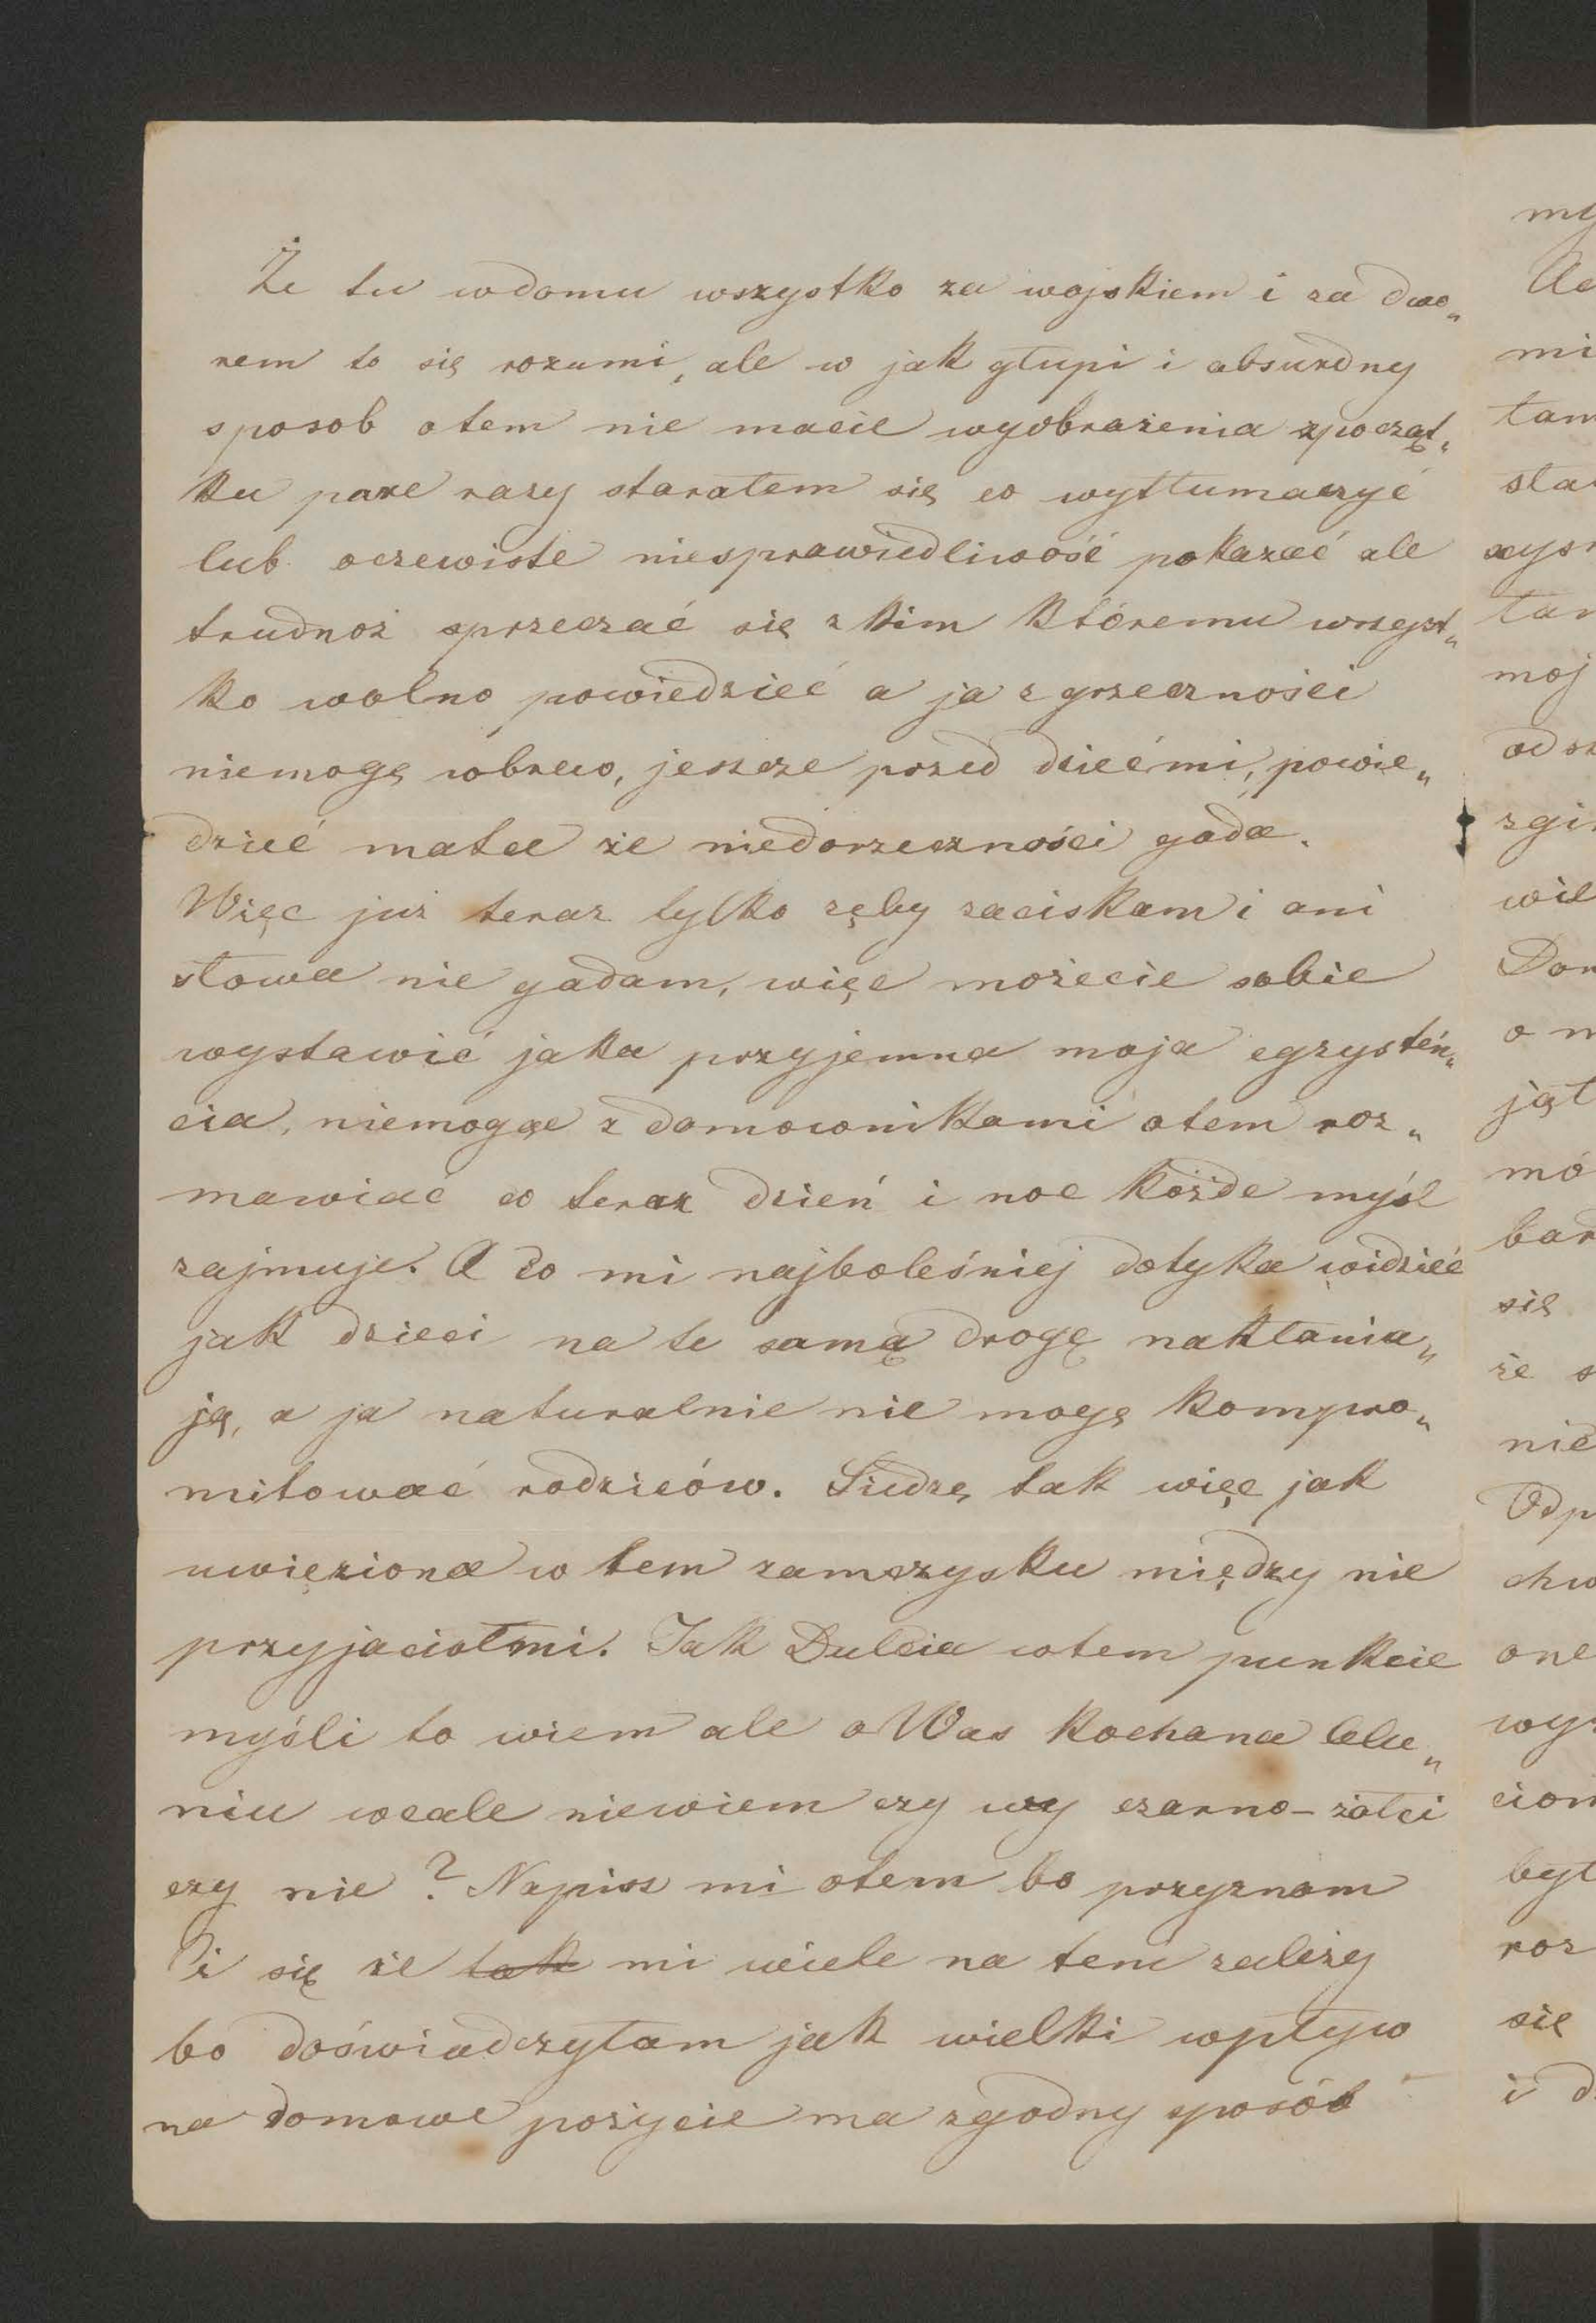 Że tu wdomu wszystko za wojskiem i za dwo„
rem to się rozumi, ale w jak głupi i absurdny
sposob otem nie macie wyobrażenia zpocząt„
ku pare razy starałem się co wytłumaczyć
lub oczewiste niesprawiedliwość pokazać ale
trudnoż sprzeczać się z kim któremu wszyst„
ko wolno powiedzieć a ja z grzeczności
niemogę wbrew, jeszcze przed dziećmi, powie„
dzieć matce że niedorzeczności gada.
Więc już teraz tylko zęby zaciskam i ani
słowa nie gadam, więc możecie sobie
wystawić jaka przyjemna moja egzystén„
cia, niemogąc z domownikami otem roz„
mawiać co teraz dzień i noc każde myśl
zajmuje. A co mi najboleśniej dotyka widzieć
jak dzieci na te samą drogę nakłania„
ją, a ja naturalnie nie mogę kompro„
mitować rodzicow. Siedzę tak więc jak
uwięziona w tem zamczysku między nie
przyjaciołmi. Jak Dulcia wtem punkcie
myśli to wiem ale o Was kochana Celu„
niu wcale niewiem czy wy czarno-żołci
czy nie? Napisz mi otem bo przyznam
Ci się że tak mi wiele na tem zależy
bo doświadczyłam jak wielki wpływ
na domowe pożycie ma zgodny sposób
my
mi
tam
moj
wil
Don
o
jął
mó
się
że s
nie
Odp
one
być
roz
się
i d